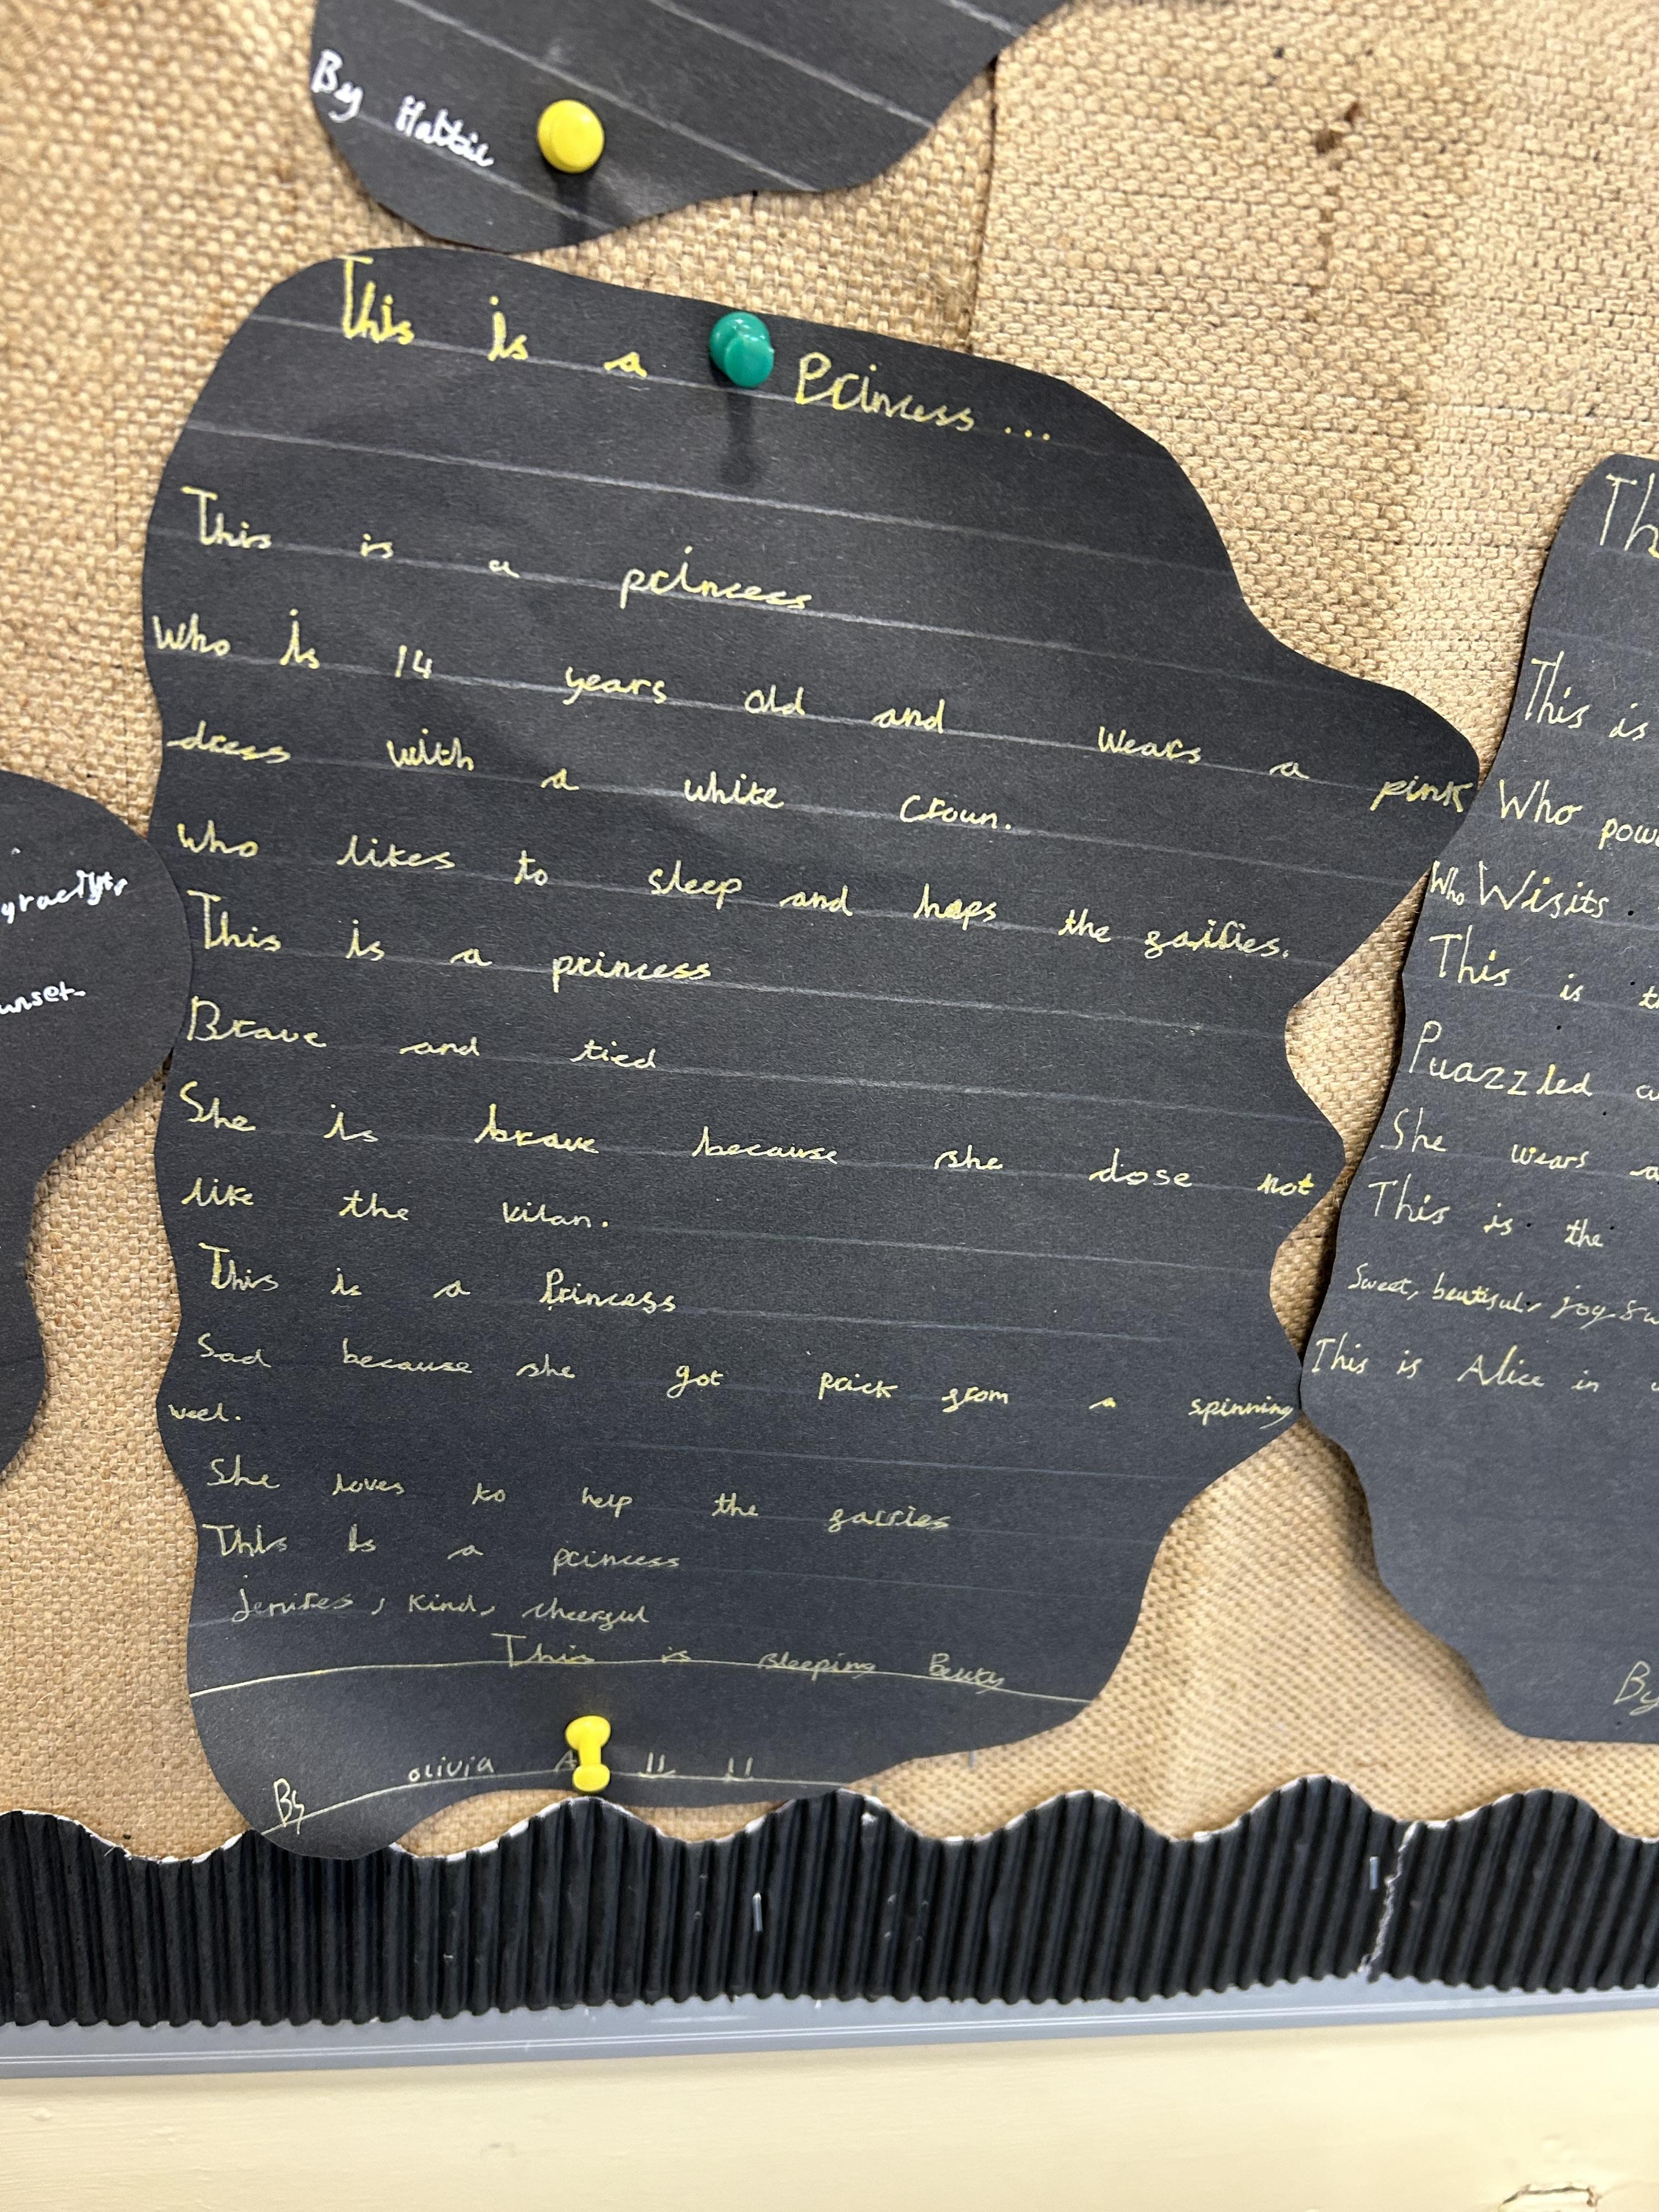 By Hattie
This is a Princess...
This is a princess
Who is 14 years old and wears a pink
dress with a white crown.
who likes to sleep and haps the fairies.
This is a princess
Brave and tied
She is brave because she dose not
like the vilan.
This is a Princess
Sad because she got prick from a spinning
weel.
She loves to help the farries
This is a princess
kind, cheerful
This is sleeping Beuty
By olivia
unset.
This is
Who
Who Wisits
This is
Puazzled
She wears a
This is the
Sweet, beutiful, joy
This is Alice in
By